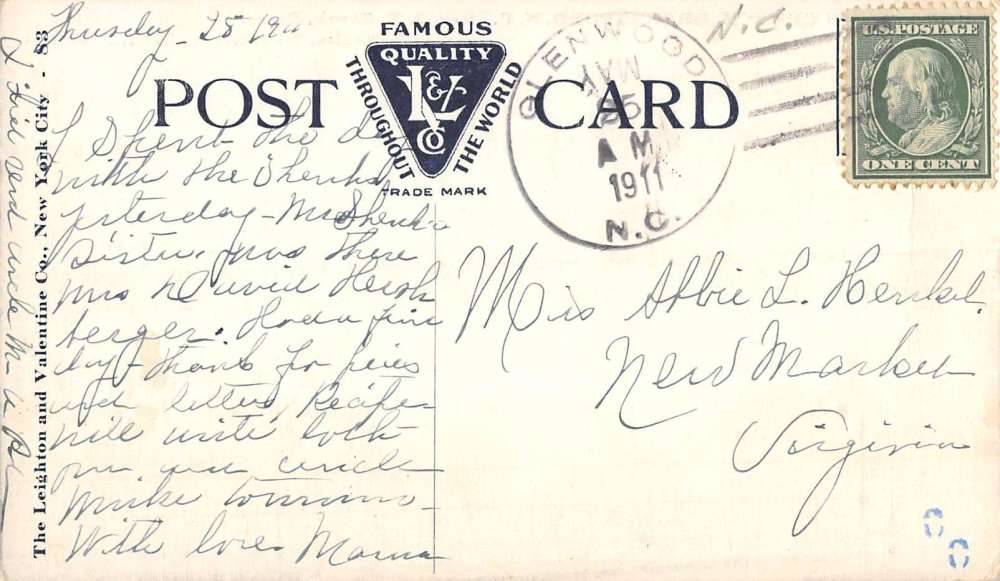 Thursday - 25 1911
N.C.
FAMOUS
QUALITY
L & V
Co
THROUGHOUT THE WORLD
TRADE MARK
POST CARD
GLENWOOD
MAY
25
A M
1911
N.C.
U.S. POSTAGE
ONE CENT
I Spent the day
with the Shenks
ysterday - Mrs Shenks
Sister was there
Mrs David Hersh
berger. Had a fine
day - thanks for
and letters, Recipe
Will write both
you and uncle
Mike
With love Mama
Miss Abbie L. Henkel.
New Market
Virginia
The Leighton and Valentine Co., New York City - 83
I this send uncle M. a